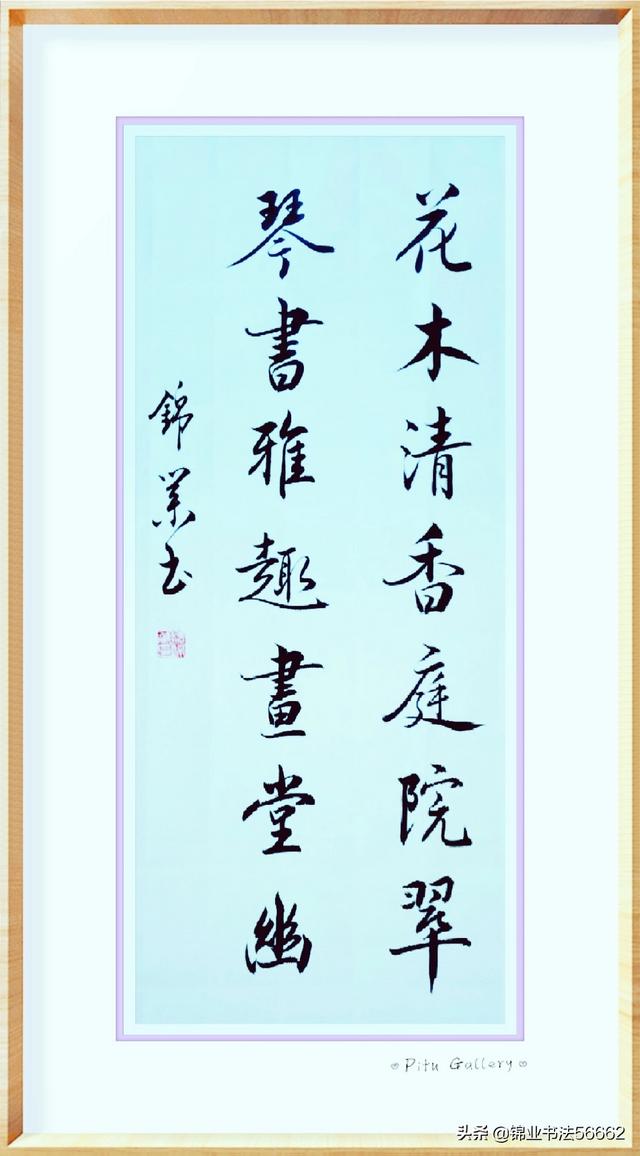 花木清香庭院翠
琴書雅趣畫堂幽
錦業书
Pitu Gallery
头条 @锦业书法56662